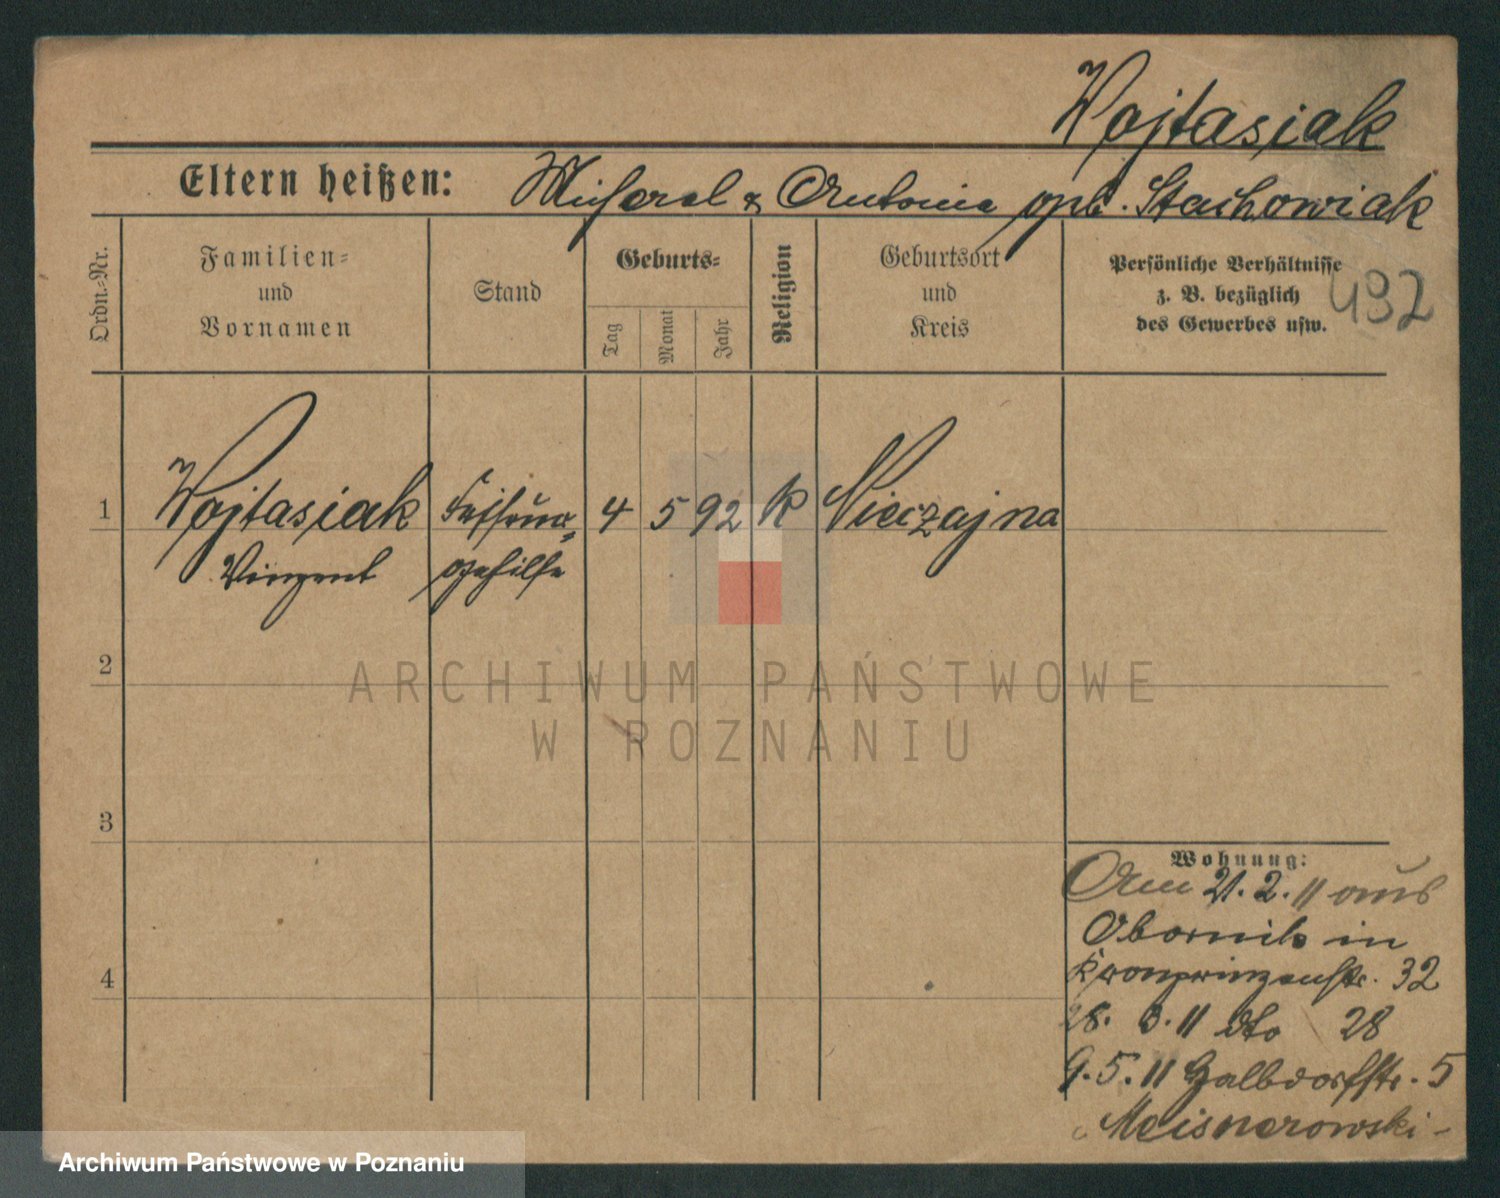 Wojtasiak
Eltern heißen: Michael & Antonia geb. Stachowiak
Ordn.-Nr.
Familien-
und
Vornamen
Stand
Geburts-
Tag
Monat
Jahr
Religion
Geburtsort
und
Kreis
Persönliche Verhältnisse
z. B. bezüglich
des Gewerbes usw.
432
1 Wojtasiak Friseur- 4 5 92 K Nieczajna
Vinzent gehilfe
2
ARCHIWUM PAŃSTWOWE
W POZNANIU
3
Wohnung:
Am 21.2.11 aus
Obornik in
Kronprinzenstr. 32
28. 3.11 dto 28
9.5.11 Halbdorfstr. 5
4
Archiwum Państwowe w Poznaniu